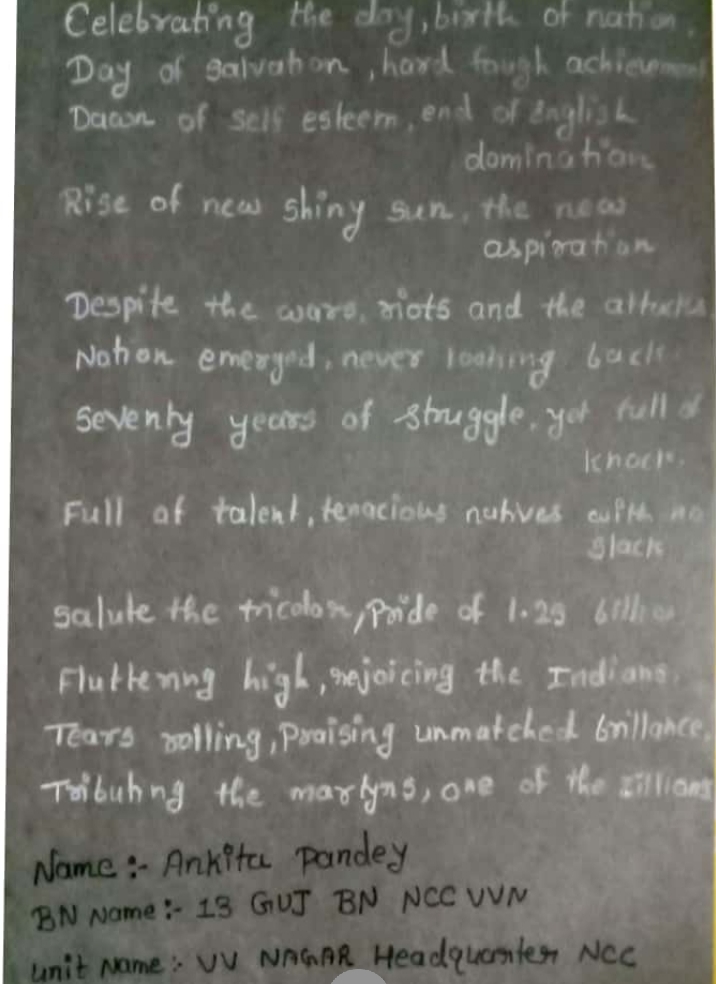 Celebrating the day, birth of nation.
Day of salvation, hard fough achievement
Dawn of self esteem, end of English
domination
Rise of new shiny sun, the new
aspiration
Despite the wars, riots and the attacks
Nation emerged, never looking back
Seventy years of struggle, yet full of
knack.
Full of talent, tenacious natives with no
slack
Salute the tricolor, Pride of 1.25 billion
Fluttering high, rejoicing the Indians.
Tears rolling, Praising unmatched brillance.
Tributing the martyrs, one of the zillions
Name :- Ankita Pandey
BN Name :- 13 GUJ BN NCC VVN
Unit Name :- VV NAGAR Headquarter NCC